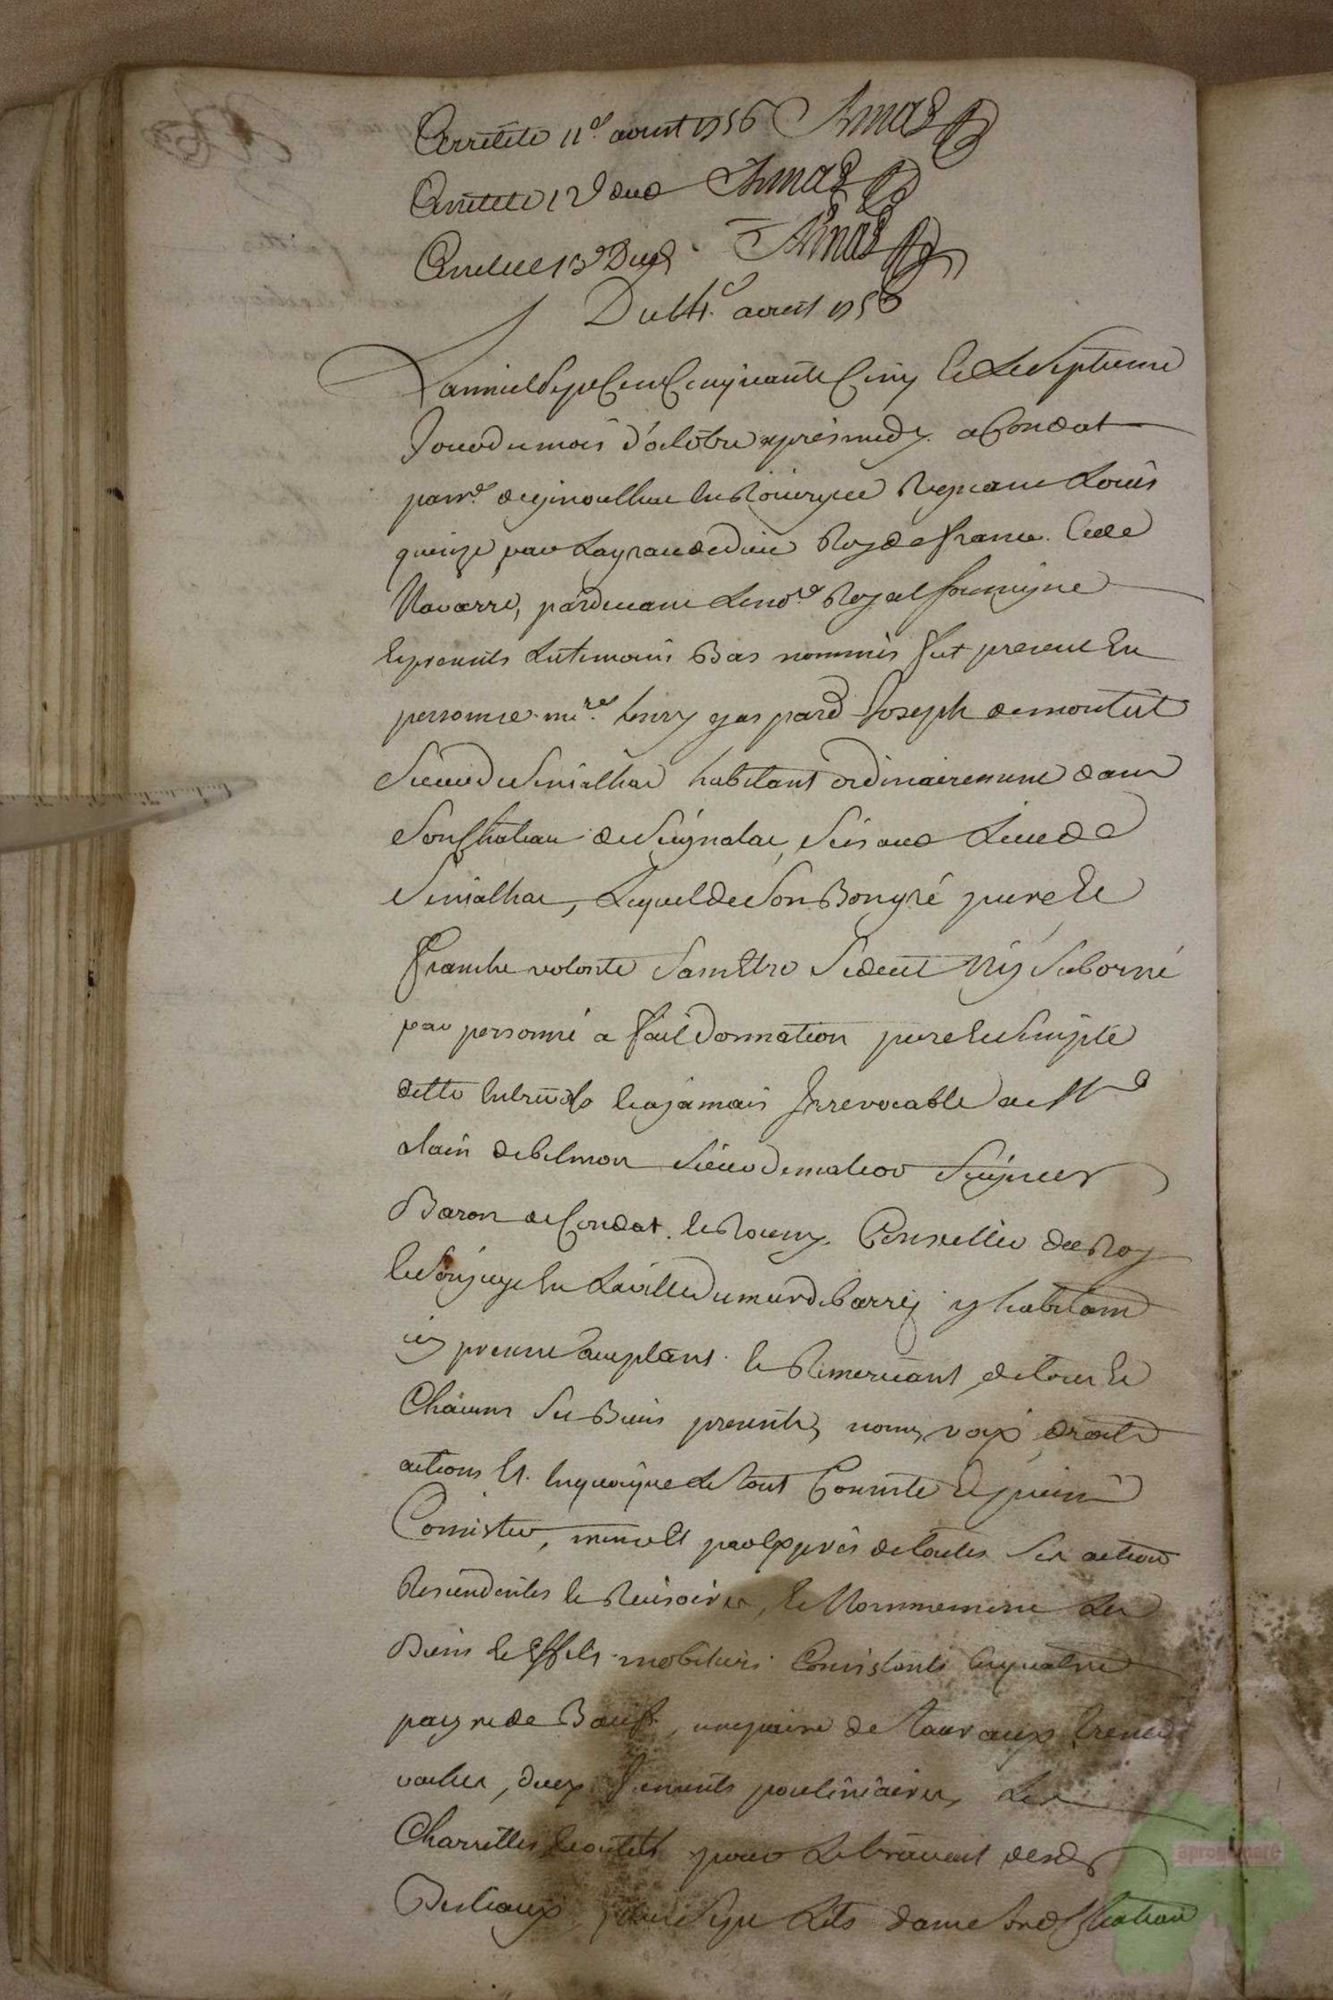 Arretté le 11e aoust 1756 Arnal
Arretté le 12e dud Arnal
Arretté le 13e Dud Arnal
Du 14e aoust 1756
Lan mil sept Cens Cinquante Cinq et le septieme
Jour du mois d'octobre apres midy a Condat
parroe de ginoulhac en Roüergue Regnant Louis
quinze par la grace de dieu Roy de france et de
Navarre, pardevant le nore Royal soussigne
et presents les temoins Bas nommés fut present en
personne mre henry gaspard Joseph de montvert
Sieur de Senialhac habitant ordinairement dans
son Chateau de Seignalac, sis aud Lieu de
Senialhac, Lequel de son Bon gré pure et
franche volonte sans Etre seduit Ny suborné
par personne a fait donnation pure et simple
ditte entre vifs et a jamais Irrevocable a Mr
alain de belmon sieur de malcor seigneur
Baron de Condat, le Conseiller du Roy
et son juge en La ville du mur de barrez y habitand
icy present acceptant et Remerciant, de tous et
Chacuns ses Biens presents, noms, voix, droits
actions et en quoy que le tout Consiste et puisse
Consister, memes par Exprès de toutes ses actions
Rescindentes et Rescisoires, et Nommement les
Biens et Effets mobiliers Consistants en quatre
payres de Bœufs, une paire de taureaux trente
vaches, deux juments poulinieres, les
Charrettes et outils pour le travail desds
Bestiaux, sept Lits dans sond Chateau
aprogemere